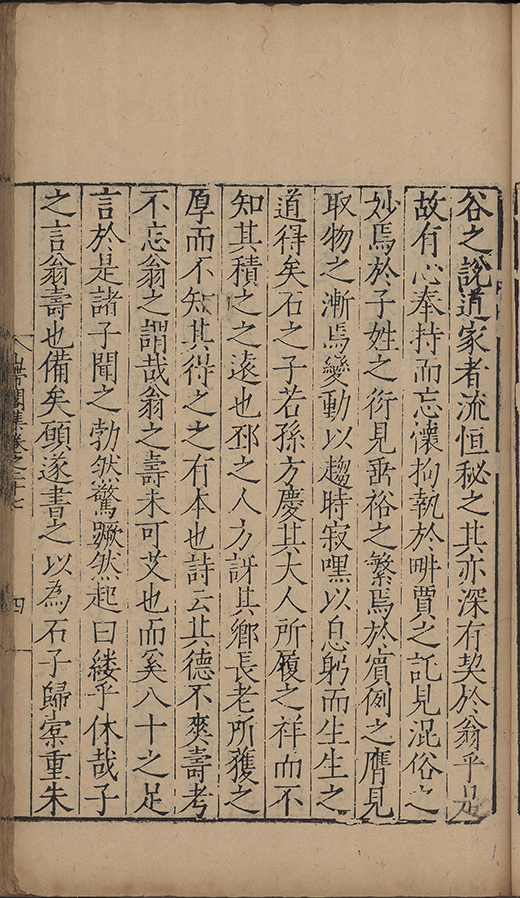 谷之說道家者流恒秘之其亦深有契於翁乎是
故有心奉持而忘懷拘執於畊賈之託見混俗之
妙焉於子姓之衍見垂裕之繁焉於賓例之膺見
取物之漸焉變動以趨時寂嘿以息躬而生生之
道得矣石之子若孫方慶其大人所履之祥而不
知其積之之遠也邳之人方訝其鄉長老所獲之
厚而不知其得之之有本也詩云其德不爽壽考
不忘翁之謂哉翁之壽未可艾也而奚八十之足
言於是諸子聞之勃然驚蹶然起曰縷乎休哉子
之言翁壽也備矣碩遂書之以為石子歸崇重朱
卷之二十七
四